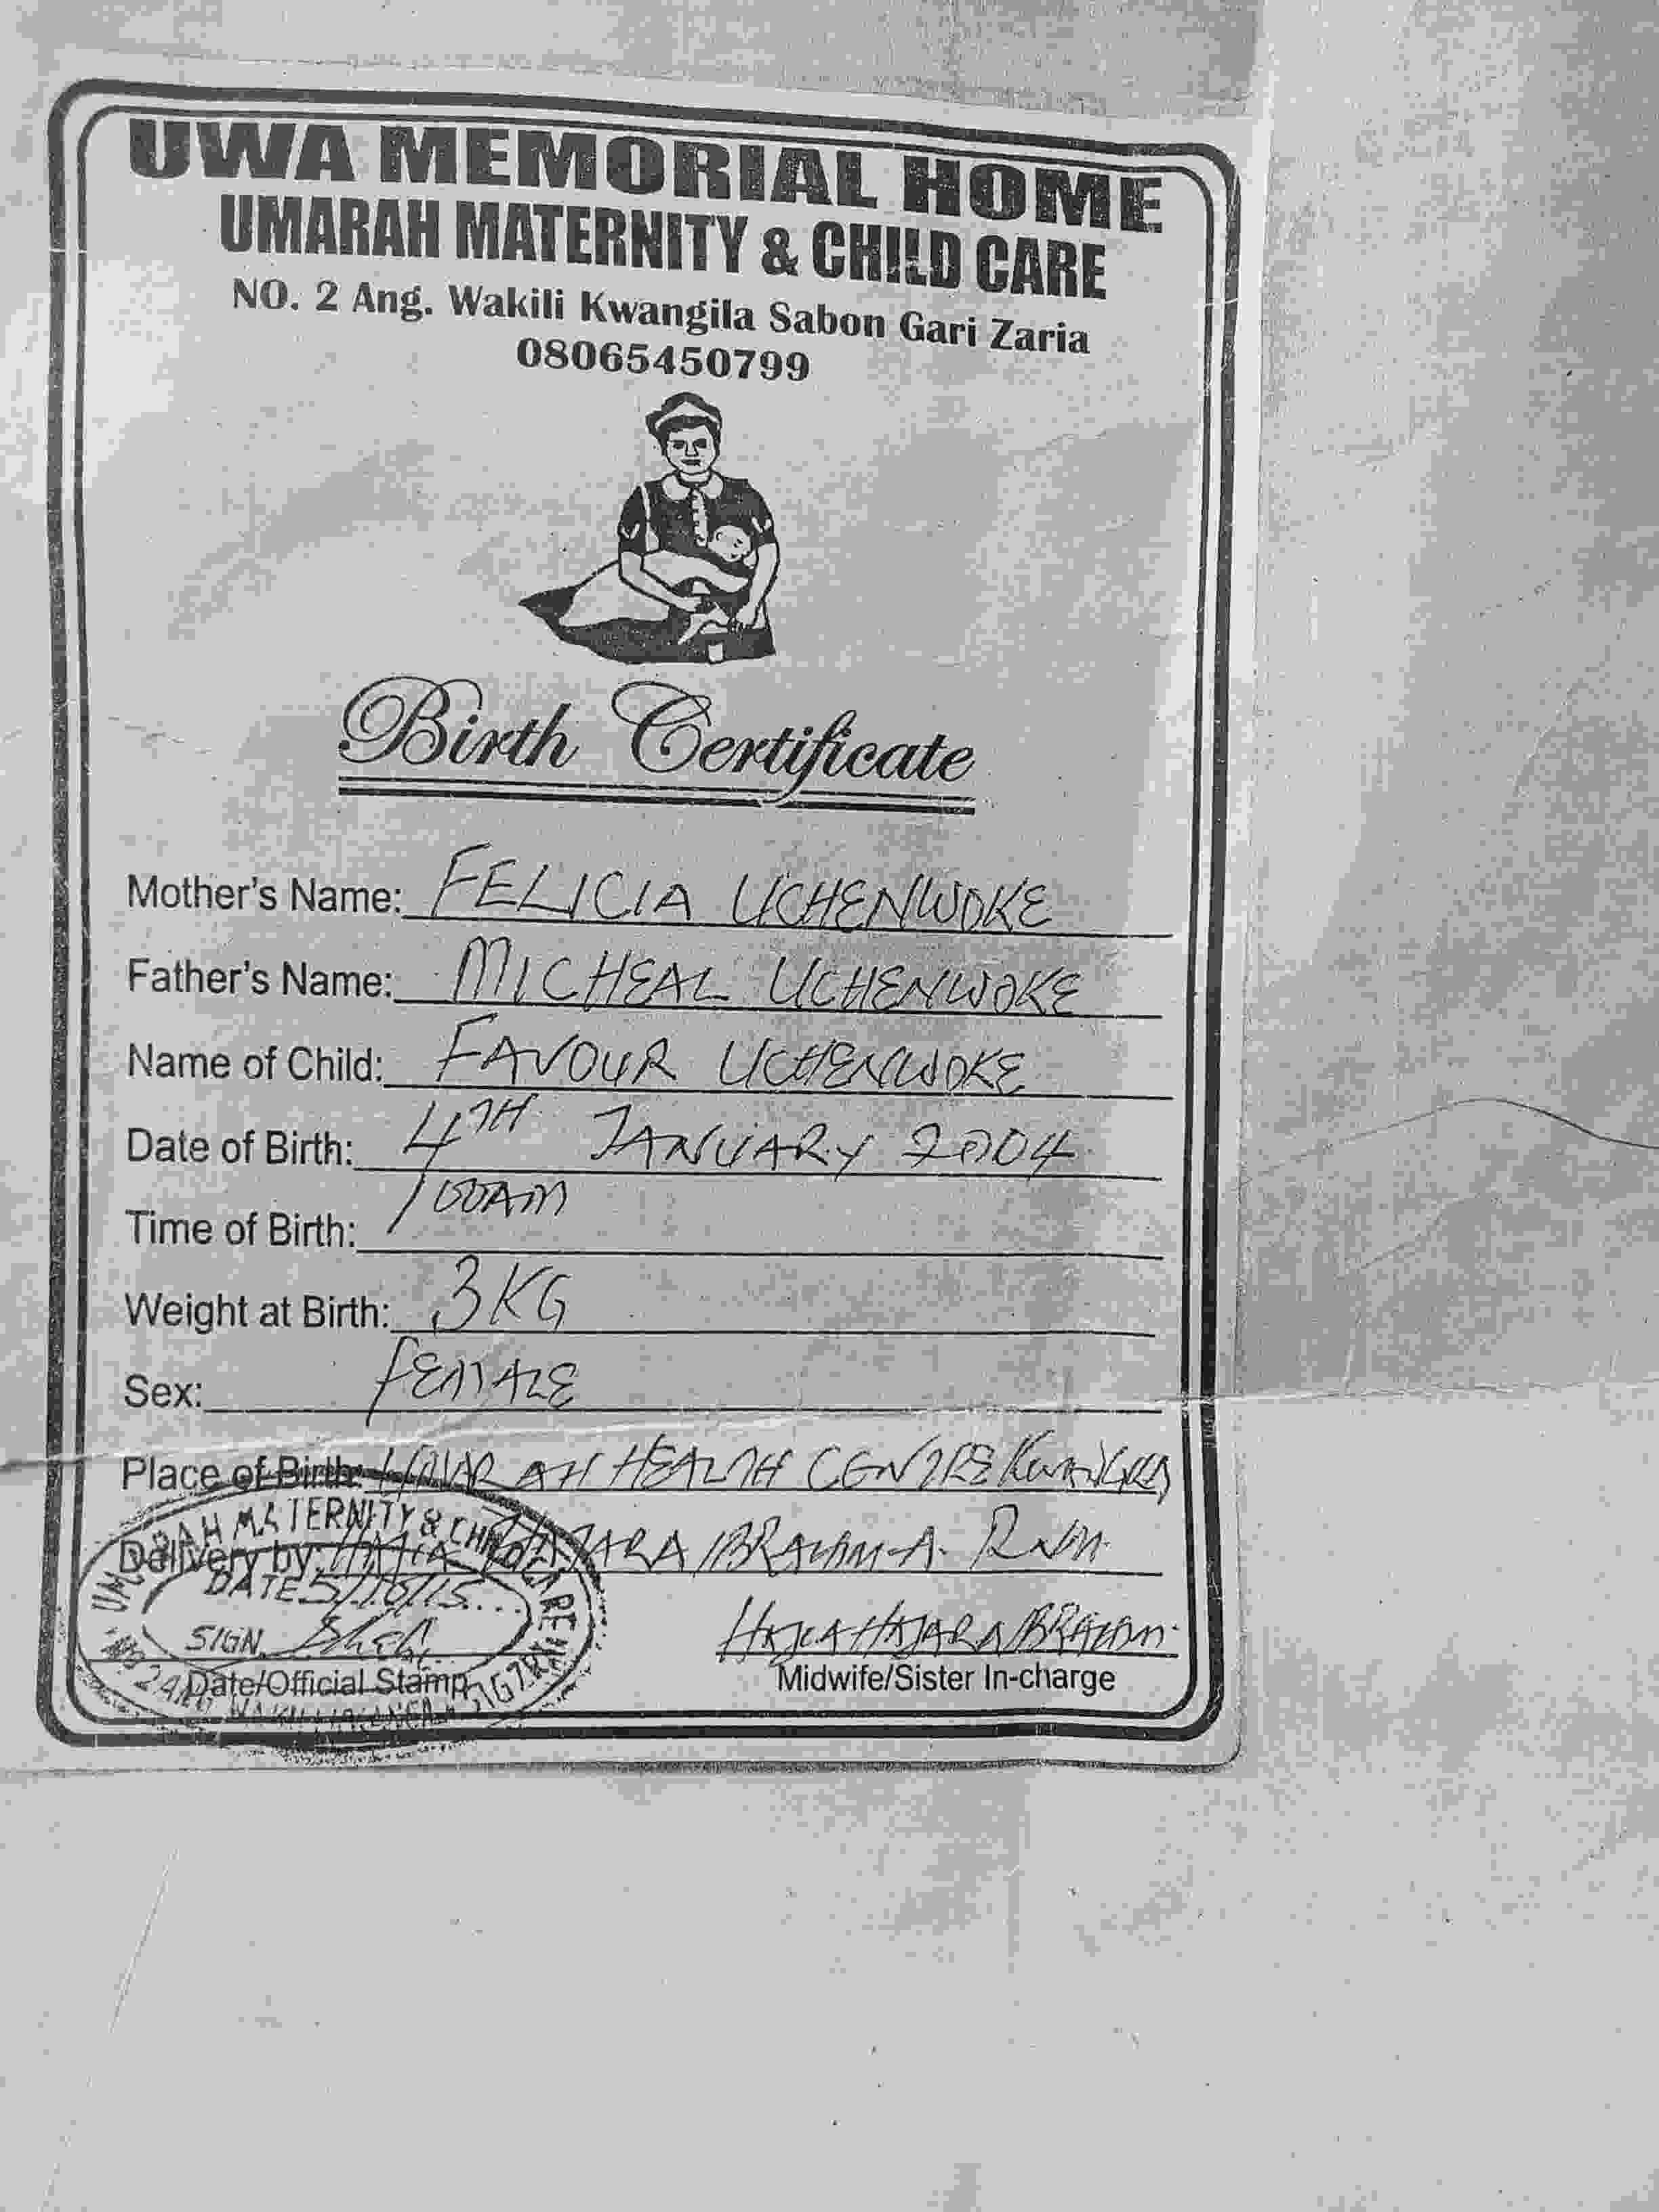 UWA MEMORIAL HOME
UMARAH MATERNITY & CHILD CARE
NO. 2 Ang. Wakili Kwangila Sabon Gari Zaria
08065450799
Birth Certificate
Mother's Name: FELICIA UCHENWOKE
Father's Name: MICHEAL UCHENWOKE
Name of Child: FAVOUR UCHENWOKE
Date of Birth: 4TH JANUARY 2004
Time of Birth:
Weight at Birth: 3KG
Sex: FEMALE
Place of Birth: UMARAH HEALTH CENTRE
Delivery by: HAJIA HAJARA IBRAHIM A. RNM
UMARAH MATERNITY & CHILD CARE
DATE 5/10/15
SIGN
Date/Official Stamp
HAJIA HAJARA IBRAHIM
Midwife/Sister In-charge